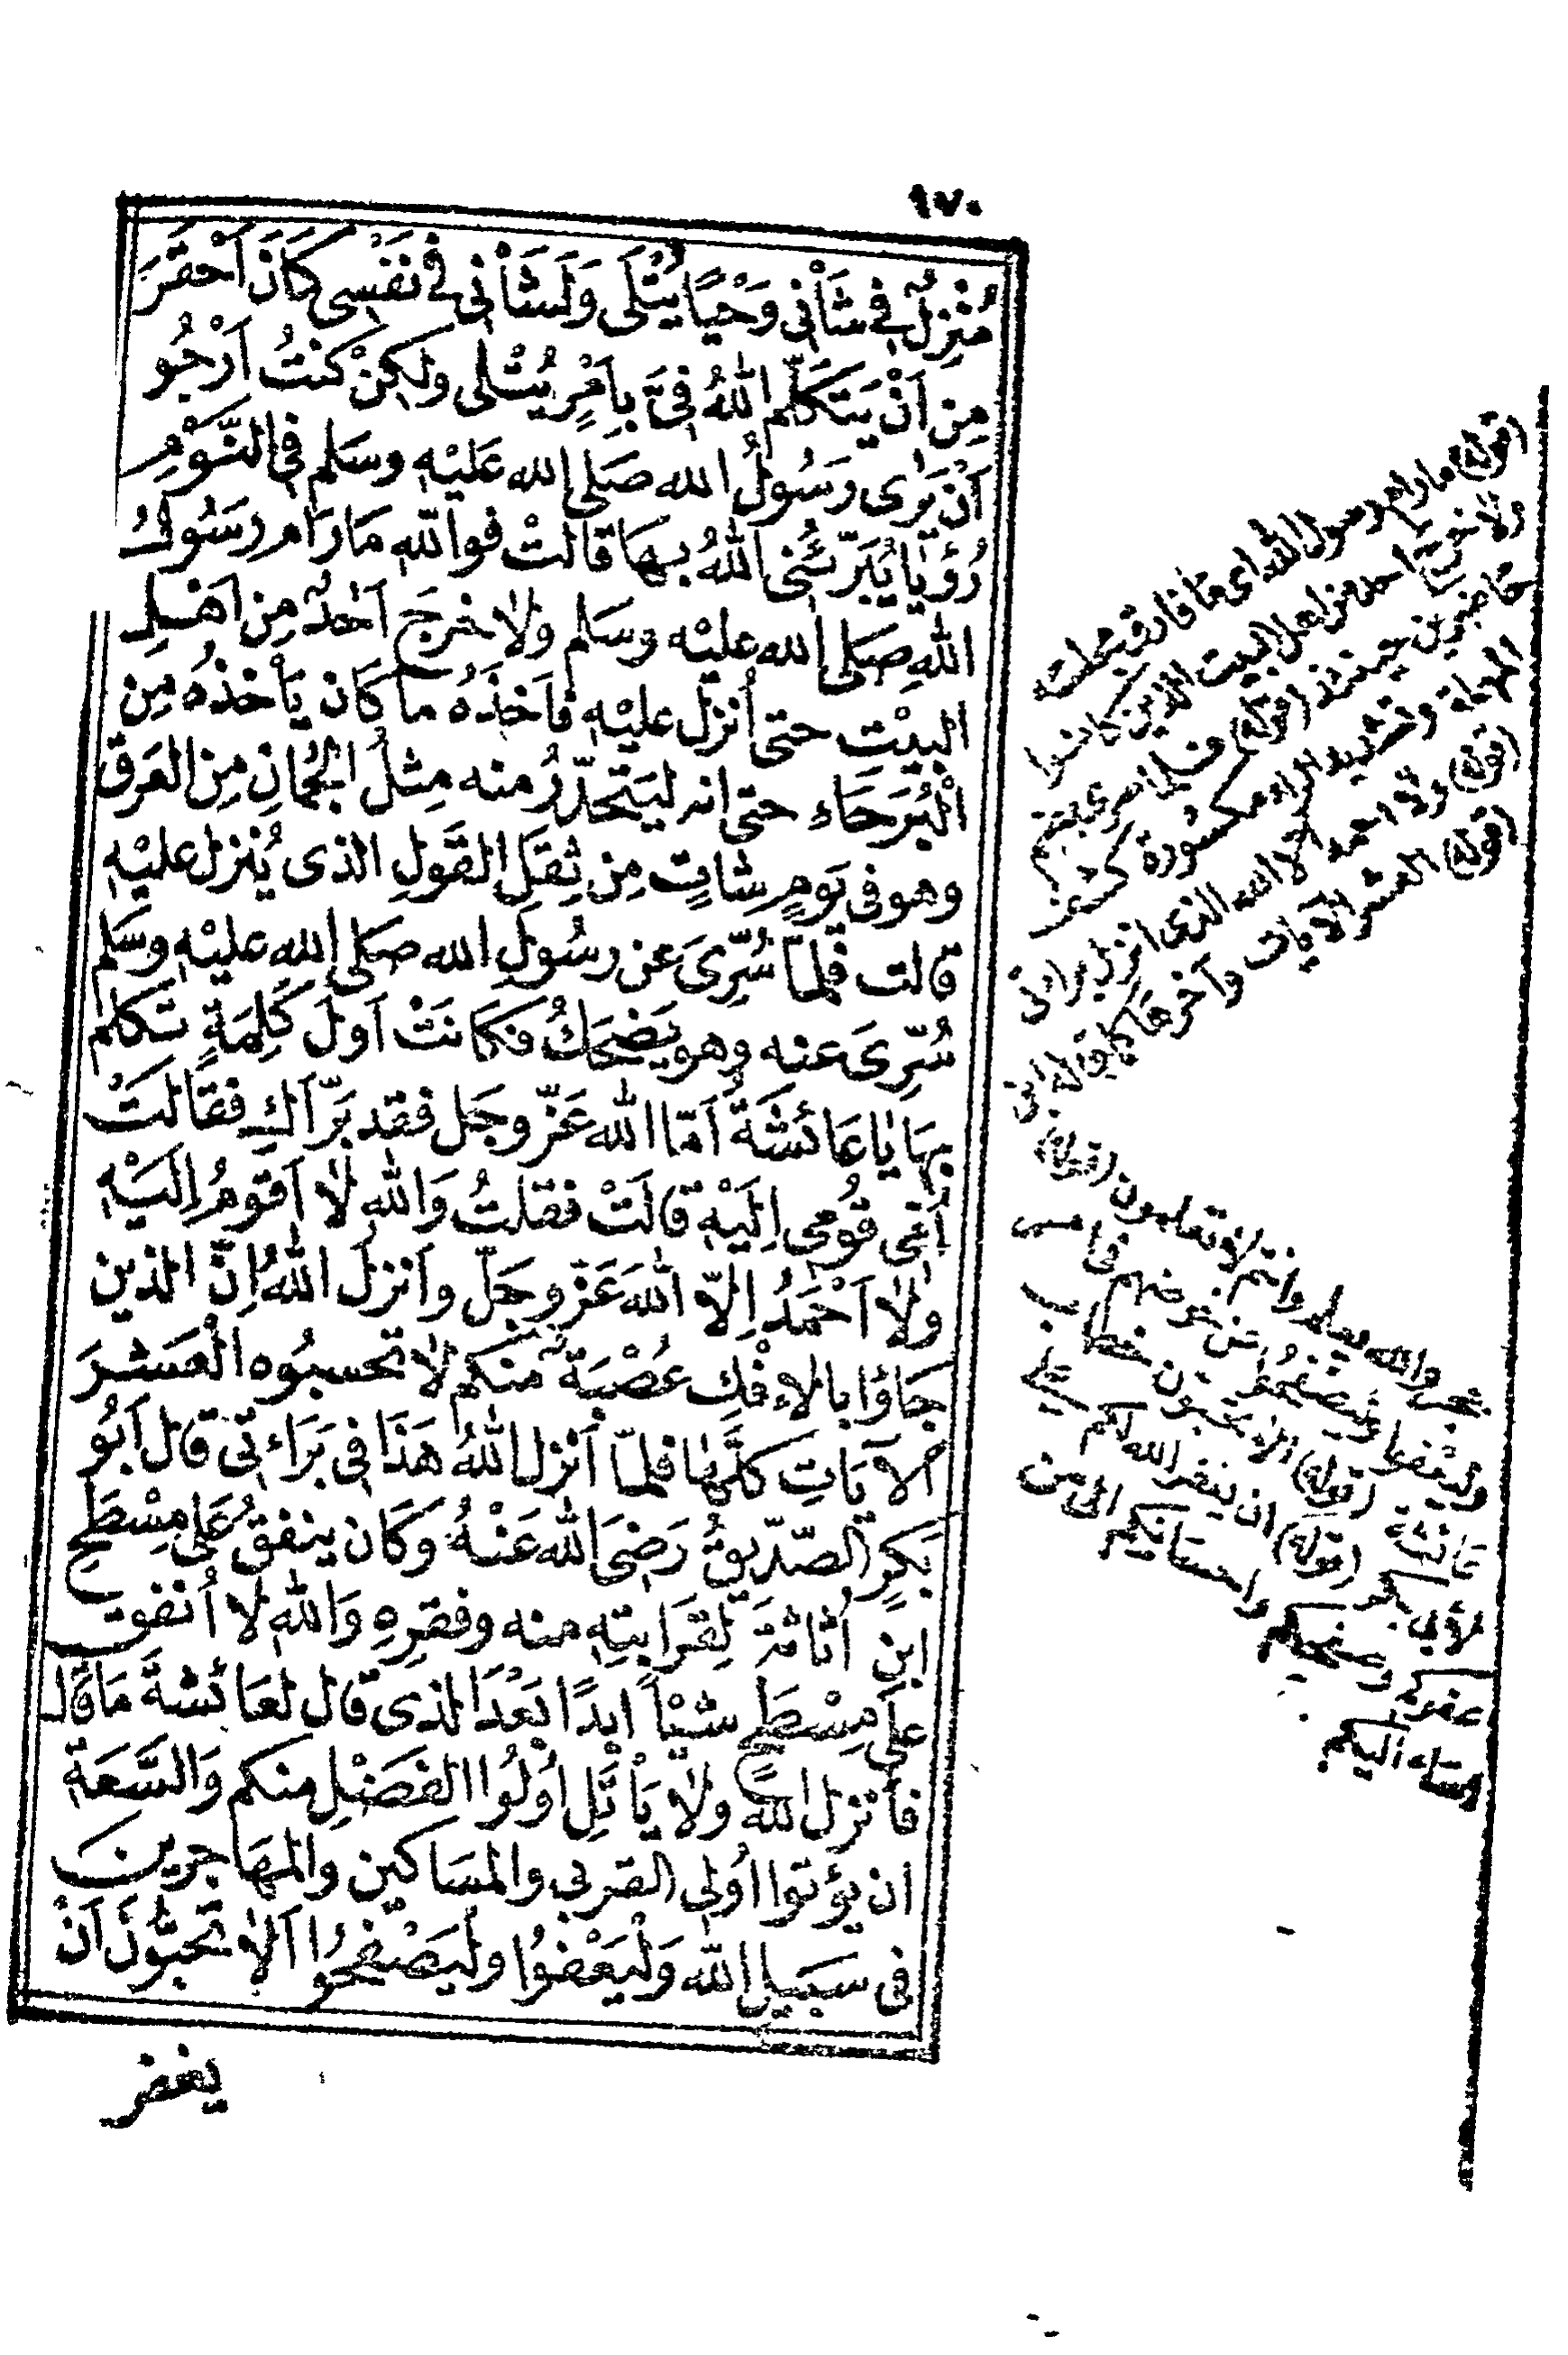 ١٧٠
مُنْزِلٌ فِي شَأْنِي وَحْيًا يُتْلَى وَلَشَأْنِي فِي نَفْسِي كَانَ اَحْقَرَ
مِن اَنْ يَتَكَلَّمَ اللّٰهُ فِيَّ بِاَمْرٍ يُتْلَى ولٰكِنْ كنتُ اَرْجُو
اَنْ يَرٰى رَسُولُ الله صَلى الله عَلَيْهِ وسَلم فِى النَّوْمِ
رُؤيَا يُبَرِّئُنِى اللّٰهُ بهَا قالتْ فوالله مَارَام رسَوُل
اللهِ صَلى الله عليْه وسَلم ولا خرجَ اَحَدٌ مِن اَهْلِ
البيْتِ حتى اُنزل عليْهِ فاَخَذَهُ ما كَان يَأخذُهُ مِن
الْبُرَحَاء حتى انه ليَتَحَدّرُ منه مِثلُ الجُمَانِ مِنَ العَرَق
وهو فى يَومٍ شاتٍ مِن ثِقَلِ القَولِ الذى يُنزل عليْهِ
قالت فلمّا سُرِّىَ عن رسُولِ الله صَلى الله عليْهِ وسَلم
سُرِّىَ عنه وهو يَضحَكُ فكَانَتْ اَولَ كَلِمَةٍ تكلم
بهَا يَا عَائشَةُ اَمّا الله عَزّ وجَل فقد بَرّ اَكِ فقَالَتْ
اُمّى قُومِى اِلَيْهِ قالَتْ فقلتُ وَاللهِ لَا اَقومُ اِلَيْهِ
ولا اَحْمَدُ اِلاّ اللهَ عَزّ وجَلّ وانزل اللهُ اِنّ الذين
جَاؤا بالاِفْكِ عُصْبَةٌ منكم لا تحسبُوه العَشرَ
الآيَاتِ كلَّهَا فلمّا اَنزل اللهُ هَذَا فى بَرَاءتى قال اَبُو
بَكرٍ الصّدّيقُ رَضِىَ الله عَنْهُ وَكَان ينفقُ عَلى مِسْطَحِ
ابنِ اُثاثةَ لِقرَابتِهِ منه وفقرِهِ وَالله لا اُنفق
على مِسْطَحٍ شيْأً ابدًا بَعْدَ الذى قال لعَائشةَ مَا قَال
فأنزل اللهُ ولا يَأْتَلِ اُولُوا الفَضْلِ منكم وَالسَّعَةِ
ان يؤتوا اُولى القربى والمسَاكين والمهَاجرين
فى سَبيلِ اللّٰه وَلْيَعْفوُا ولْيَصْفحُوا اَلاَ تحبُّونَ اَنْ
يغفر
(قوله) مارام رسول الله اى ما فارق مجلسه
ولا خرج احد من اهل البيت الذين كانوا
حاضرين حينئذ (قوله) فلما سرى بضم
المهملة وتشديد الراء مكسورة كشف
(قوله) ولا احمد الا الله الذى انزل براءتى
(قوله) العشر الآيات وآخرها كما قاله ابن
والله يعلم وانتم لا تعلمون (قوله)
وليعفوا وليصفحوا عن خوضهم فى امر
عائشة (قوله) الا تحبون خطاب
لأبى بكر (قوله) ان يغفر الله لكم على
عفوكم وصفحكم واحسانكم الى من
اساء اليكم